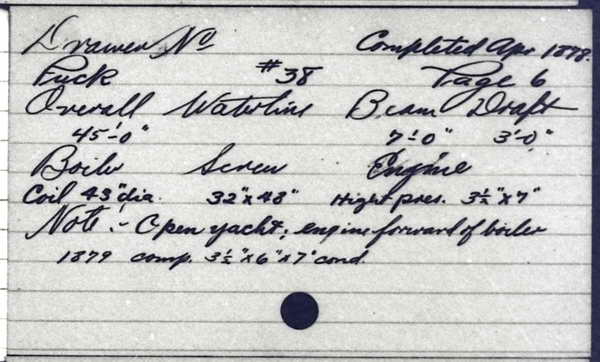 Drawer No Completed Apr 1878.
Puck #38 Page 6
Overall Waterline Beam Draft
45'-0" 7'-0" 3'-0"
Boiler Screw Engine
Coil 43" dia. 32" x 48" Hight pres. 3½" x 7"
Note:- Open yacht; engine forward of boiler
1879 comp. 3½" x 6" x 7" cond.